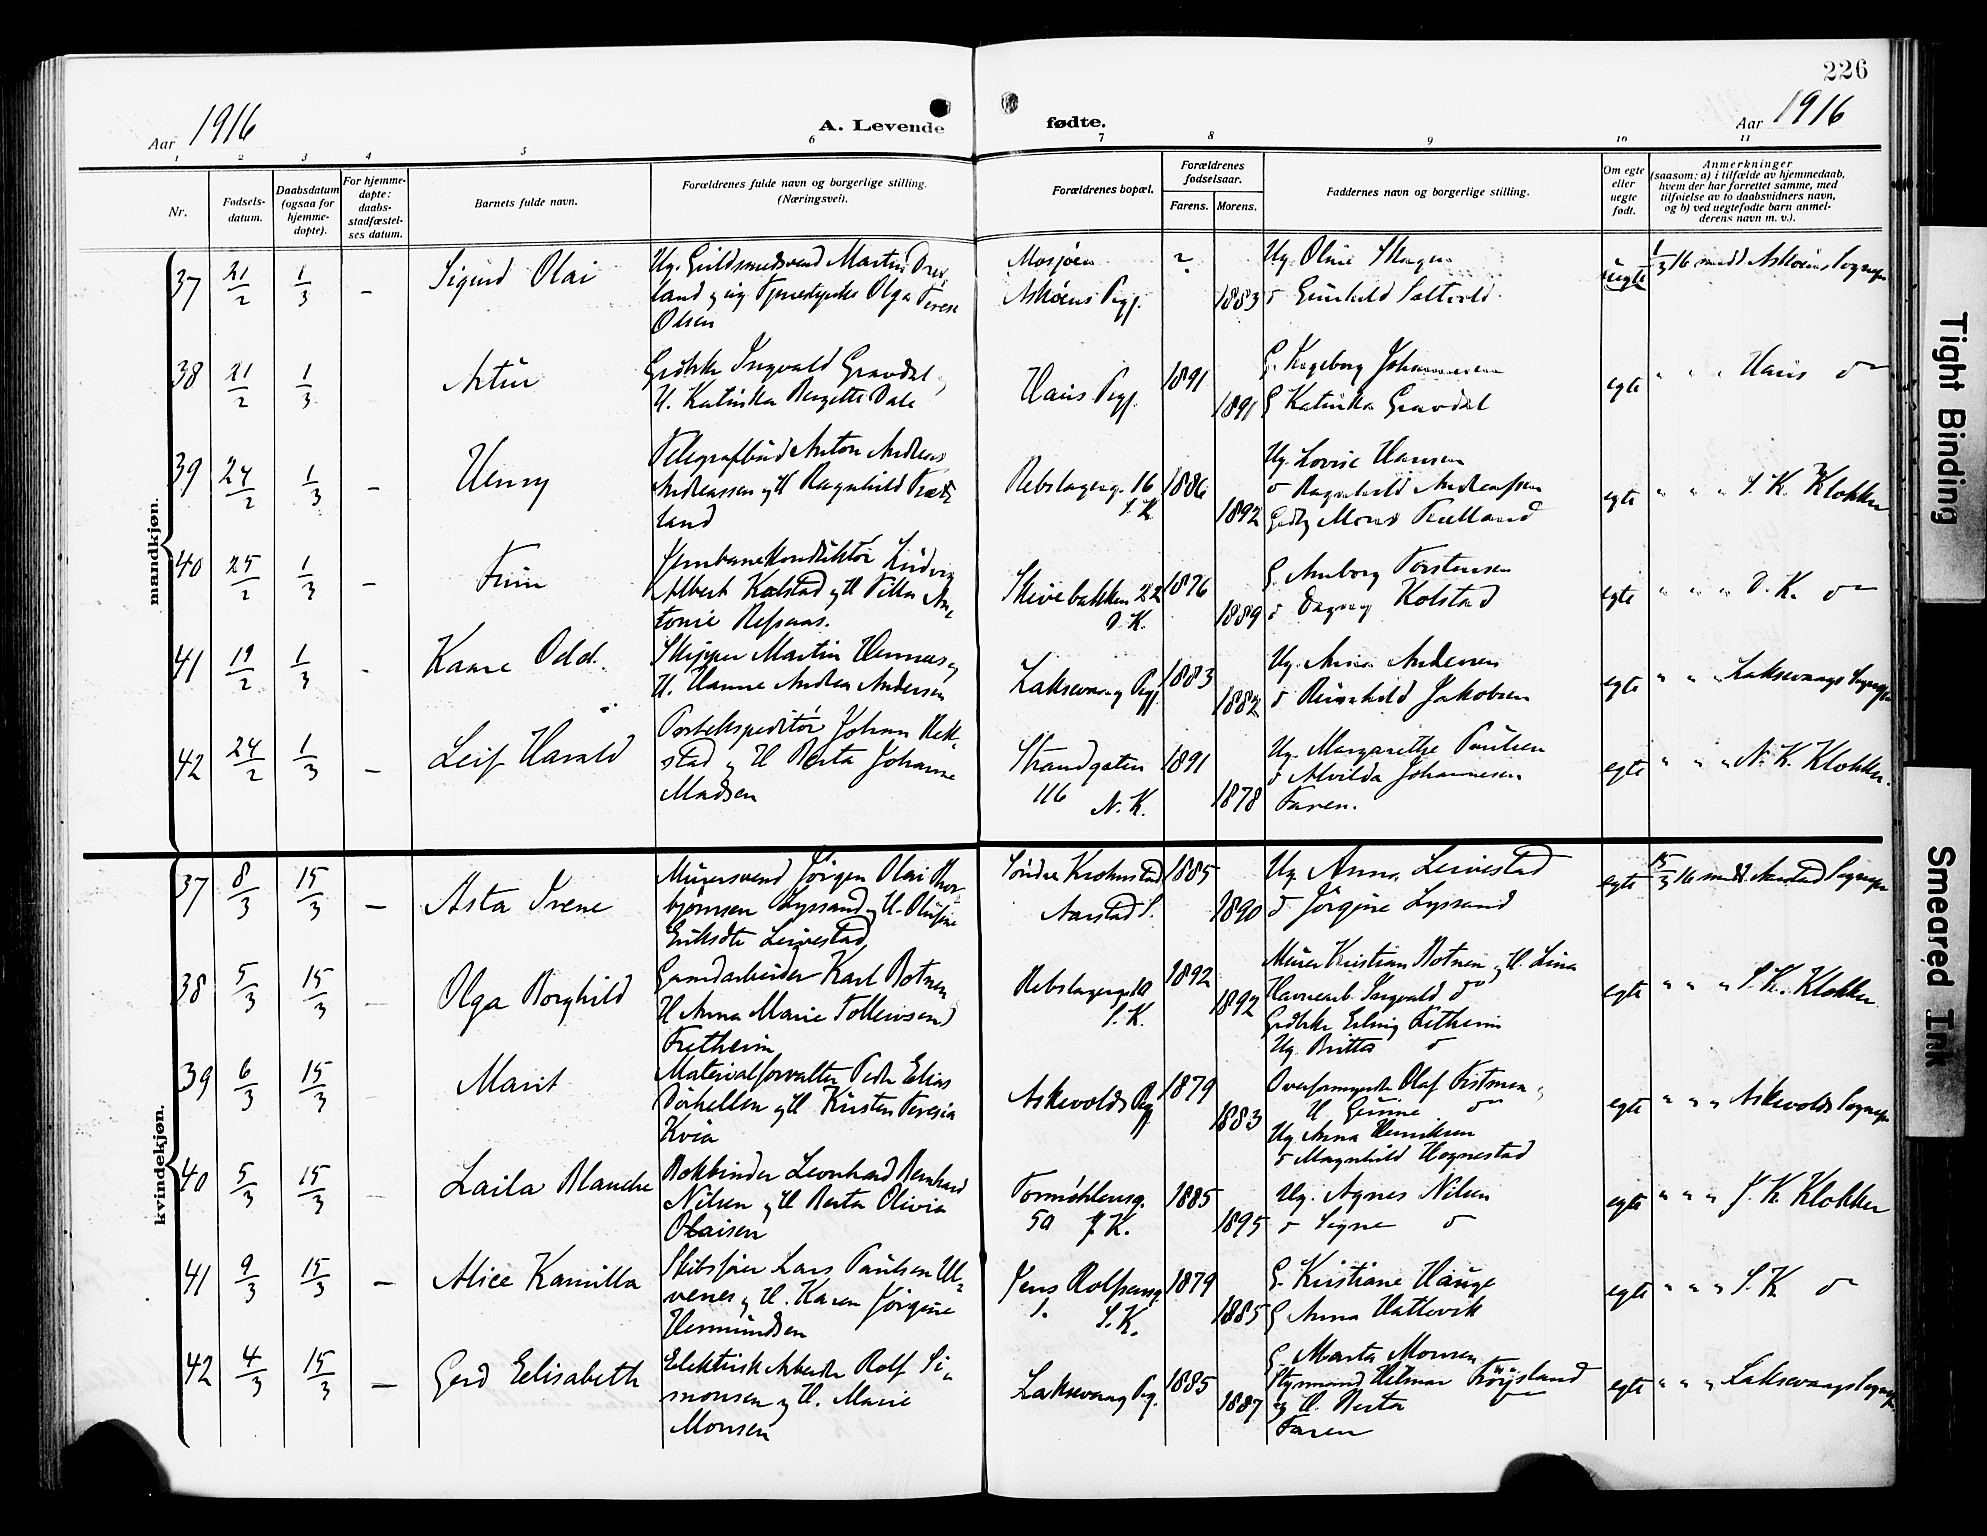 226
Aar 1916
A. Levende fødte.
Aar 1916
1 2 3 4 5 6 7 8 9 10 11
Nr.
Fødsels-
datum.
Daabsdatum
(ogsaa for
hjemme-
døpte).
For hjemme-
døpte:
daabs-
stadfæstel-
ses datum.
Barnets fulde navn.
Forældrenes fulde navn og borgerlige stilling.
(Næringsvei).
Forældrenes bopæl.
Forældrenes
fødselsaar.
Farens. Morens.
Faddernes navn og borgerlige stilling.
Om egte
eller
uegte
født.
Anmerkninger
(saasom: a) i tilfælde av hjemmedaab,
hvem der har forrettet samme, med
tilføielse av to daabsvidners navn,
og b) ved uegtefødte barn anmel-
derens navn m. v.).
mandkjøn.
37 21/2 1/3 – Sigurd Olai
Ug. Guldsmedsvend Martin
land og ug Tjenestepike Olga Terese
Olsen
Mosjøen
Askøens Pgj.
? 1883
Ug Oline
d Gunhild
uegte
1/3 16 medd Askøens Sognepr
38 21/2 1/3 Artur
Ingvald Gravdal
H. Katinka Bergette Dale
Haus Pgj.
1891 1891
G. Ingeborg Johannesen
G Katinka Gravdal
egte
" " " Haus do
39 24/2 1/3 – Henry
Telegrafbud Anton Andreas
Andreassen og H Ragnhild
land
Rebslagerg. 16
S. K.
1886 1892
Ug. Lovise Hansen
d Ragnhild Andreassen
Mons
egte
" " " S. K. Klokker
40 25/2 1/3 – Finn
Jernbanekonduktør Ludvig
Albert Kolstad og H Villa An-
tonie Refsnæs.
Skivebakken 22
D. K.
1876 1889
G. Amborg Torstensen
d Dagny Kolstad
egte
" " " D. K. do
41 19/2 1/3 – Kaare Odd.
Skipper Martin
H. Hanne Andrea Andersen
Laksevaag Pgj.
1883 1882
Ug. Anna Andersen
d Ragnhild Jakobsen
egte
" " " Laksevaags Sognepr
42 24/2 1/3 – Leif Harald
Postekspeditør Johan Rek-
stad og H Berta Johanne
Madsen
Strandgaten
116 N. K.
1891 1878
Ug. Margarethe Paulsen
d Alvilda Johannesen
Faren.
egte
" " " N. K. Klokker.
kvindekjøn.
37 8/3 15/3 – Asta Irene
Murersvend Jörgen Olai Thor-
bjørnsen Lyssand og H. Olufine
Eriksdtr Leirvestad
Søndre Krohnstad
Aarstad S.
1885 1890
Ug Anna Leirvestad
d Jörgine Lyssand
egte
15/3 16 medd Aarstad Sognepr
38 5/3 15/3 – Olga Borghild
Grundarbeider Karl Botnen
H Anna Marie Tollevsen
Fretheim
Rebslagerg. 10
S. K.
1892 1892
Murer Kristian Botnen og H. Lina
Havnearb. Ingvald do
Erling Fretheim
Ug. Britta d
egte
" " " S. K. Klokker
39 6/3 15/3 Marit
Materialforvalter Peder Elias
og H Kirsten Teresia
Kvia
Askevolds Pgj
1879 1883
Olaf
H Gunne do
Ug Anna Henriksen
d Magnhild Hognestad
egte
" " " Askevolds Sognepr
40 5/3 15/3 – Laila Blanche
Bokbinder Leonhard Bernhard
Nilsen og H Berta Olivia
Olaisen
Tormøhlensg.
5a J. K.
1885 1895
Ug. Agnes Nilsen
d Signe d
egte
" " " J. K. Klokker
41 9/3 15/3 – Alice Kamilla
Skibsfører Lars Paulsen Ul-
venes og H. Karen Jörgine
Hermundsen
Jens Rolfsensg
1. S. K.
1879 1885
G. Kristiane Hauge
G Anna Hattevik
egte
" " " S. K. do
42 4/3 15/3 – Gerd Elisabeth
Elektrisk Arbeider Rolf Si-
monsen og H. Marie
Monsen
Laksevaag Pg.
1885 1887
G. Marta Monsen
Styrmand Helmar
og H. Berta
Faren
egte
" " " Laksevaags Sognepr
Tight Binding
Smeared Ink